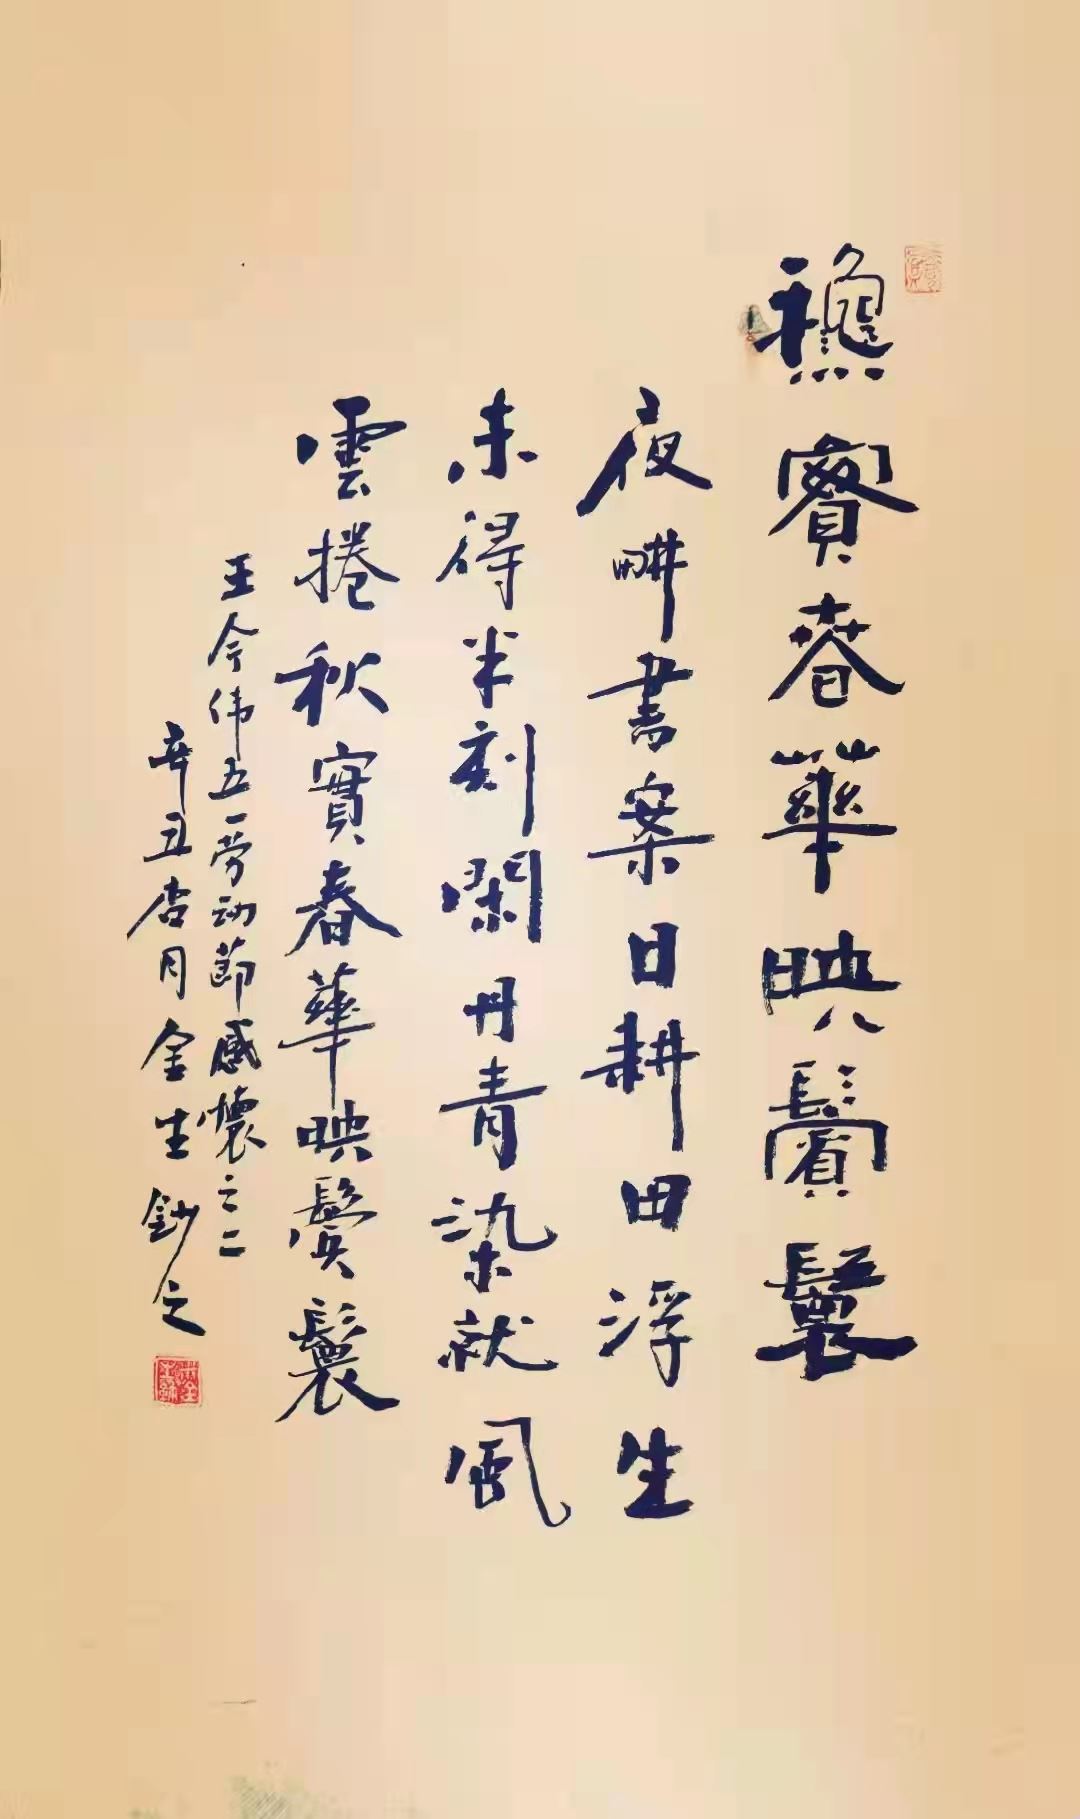 龝實春華映鬢鬟
夜畊書案日耕田浮生
未得半刻閑丹青染就風
雲捲秋實春華映鬢鬟
王今伟五一劳动節感懷之二
辛丑杏月金生鈔之